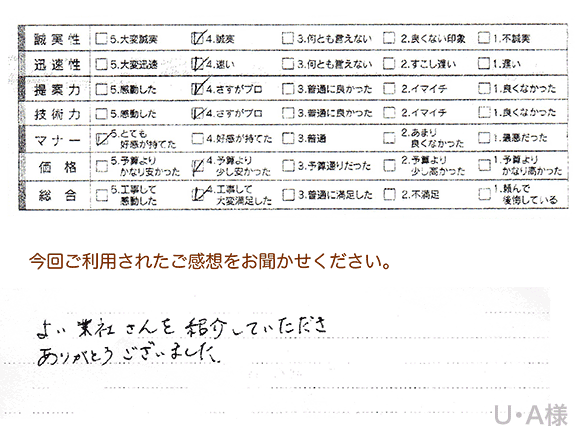 誠実性 □5.大変誠実 ☑4.誠実 □3.何とも言えない □2.良くない印象 □1.不誠実
迅速性 □5.大変迅速 ☑4.速い □3.何とも言えない □2.すこし遅い □1.遅い
提案力 □5.感動した ☑4.さすがプロ □3.普通に良かった □2.イマイチ □1.良くなかった
技術力 □5.感動した ☑4.さすがプロ □3.普通に良かった □2.イマイチ □1.良くなかった
マナー ☑5.とても好感が持てた □4.好感が持てた □3.普通 □2.あまり良くなかった □1.最悪だった
価格 □5.予算よりかなり安かった ☑4.予算より少し安かった □3.予算通りだった □2.予算より少し高かった □1.予算よりかなり高かった
総合 □5.工事して感動した ☑4.工事して大変満足した □3.普通に満足した □2.不満足 □1.頼んで後悔している
今回ご利用されたご感想をお聞かせください。
よい業社さんを紹介していただき
ありがとうございました。
U・A様